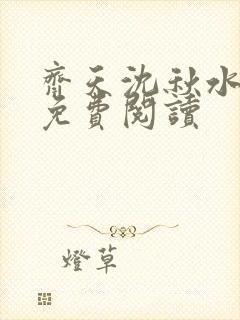 齊天沈秋水
免費閱讀
燈草